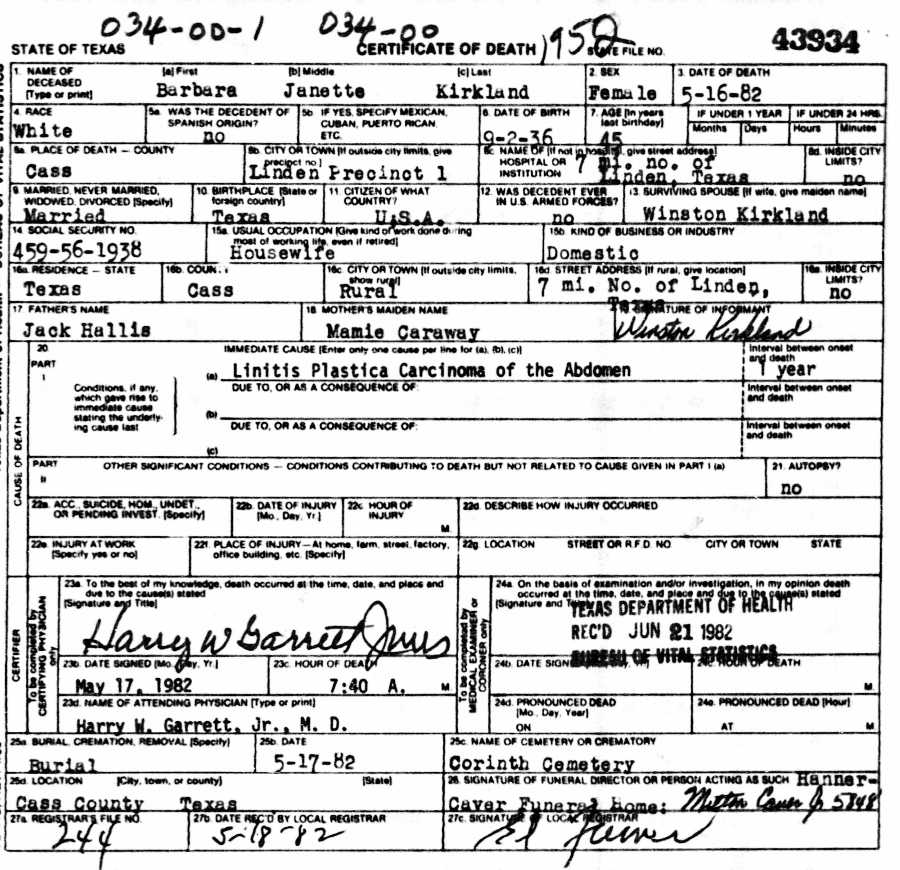 034-00-1 034-00
STATE OF TEXAS CERTIFICATE OF DEATH 1952 STATE FILE NO. 43934
1. NAME OF DECEASED [Type or print] [a] First Barbara [b] Middle Janette [c] Last Kirkland 2. SEX Female 3. DATE OF DEATH 5-16-82
4. RACE White 5a. WAS THE DECEDENT OF SPANISH ORIGIN? no 5b IF YES, SPECIFY MEXICAN, CUBAN, PUERTO RICAN, ETC. 6. DATE OF BIRTH 9-2-36 7. AGE [In years last birthday] 45 IF UNDER 1 YEAR Months Days IF UNDER 24 HRS. Hours Minutes
8a. PLACE OF DEATH — COUNTY Cass 8b. CITY OR TOWN [If outside city limits, give precinct no.] Linden Precinct 1 8c. NAME OF [If not in hospital, give street address] HOSPITAL OR INSTITUTION 7 mi. no. of Linden, Texas 8d. INSIDE CITY LIMITS? no
9. MARRIED, NEVER MARRIED, WIDOWED, DIVORCED [Specify] Married 10. BIRTHPLACE [State or foreign country] Texas 11. CITIZEN OF WHAT COUNTRY? U.S.A. 12. WAS DECEDENT EVER IN U.S. ARMED FORCES? no 13. SURVIVING SPOUSE [If wife, give maiden name] Winston Kirkland
14. SOCIAL SECURITY NO. 459-56-1938 15a. USUAL OCCUPATION [Give kind of work done during most of working life, even if retired] Housewife 15b. KIND OF BUSINESS OR INDUSTRY Domestic
16a. RESIDENCE — STATE Texas 16b. COUN Cass 16c. CITY OR TOWN [If outside city limits, show rural] Rural 16d STREET ADDRESS [If rural, give location] 7 mi. No. of Linden, Texas 16e. INSIDE CITY LIMITS? no
17. FATHER'S NAME Jack Hallis 18. MOTHER'S MAIDEN NAME Mamie Caraway 19. SIGNATURE OF INFORMANT Winston Kirkland
CAUSE OF DEATH
20 PART I IMMEDIATE CAUSE [Enter only one cause per line for (a), (b), (c)] Interval between onset and death
(a) Linitis Plastica Carcinoma of the Abdomen 1 year
Conditions, if any, which gave rise to immediate cause stating the underlying cause last
DUE TO, OR AS A CONSEQUENCE OF: Interval between onset and death
(b)
DUE TO, OR AS A CONSEQUENCE OF: Interval between onset and death
(c)
PART II OTHER SIGNIFICANT CONDITIONS — CONDITIONS CONTRIBUTING TO DEATH BUT NOT RELATED TO CAUSE GIVEN IN PART I (a) 21. AUTOPSY? no
22a. ACC., SUICIDE, HOM., UNDET., OR PENDING INVEST. [Specify] 22b. DATE OF INJURY [Mo., Day, Yr.] 22c. HOUR OF INJURY M. 22d. DESCRIBE HOW INJURY OCCURRED
22e. INJURY AT WORK [Specify yes or no] 22f. PLACE OF INJURY—At home, farm, street, factory, office building, etc. [Specify] 22g. LOCATION STREET OR R.F.D. NO CITY OR TOWN STATE
CERTIFIER
To be completed by CERTIFYING PHYSICIAN only
23a. To the best of my knowledge, death occurred at the time, date, and place and due to the cause(s) stated [Signature and Title]
Harry W Garrett
23b. DATE SIGNED [Mo., Day, Yr.] May 17, 1982 23c. HOUR OF DEATH 7:40 A. M
23d. NAME OF ATTENDING PHYSICIAN [Type or print] Harry W. Garrett, Jr., M. D.
To be completed by MEDICAL EXAMINER or CORONER only
24a. On the basis of examination and/or investigation, in my opinion death occurred at the time, date, and place and due to the cause(s) stated [Signature and Title]
TEXAS DEPARTMENT OF HEALTH
REC'D JUN 21 1982
BUREAU OF VITAL STATISTICS
24b. DATE SIGNED [Mo., Day, Yr.] 24c. HOUR OF DEATH M
24d. PRONOUNCED DEAD [Mo., Day, Year] ON 24e. PRONOUNCED DEAD [Hour] AT M
25a. BURIAL, CREMATION, REMOVAL [Specify] Burial 25b. DATE 5-17-82 25c. NAME OF CEMETERY OR CREMATORY Corinth Cemetery
25d. LOCATION [City, town, or county] [State] Cass County Texas 26. SIGNATURE OF FUNERAL DIRECTOR OR PERSON ACTING AS SUCH Hanner-Caver Funeral Home: Milton Caver Jr 5848
27a. REGISTRAR'S FILE NO. 244 27b. DATE REC'D BY LOCAL REGISTRAR 5-18-82 27c. SIGNATURE OF LOCAL REGISTRAR